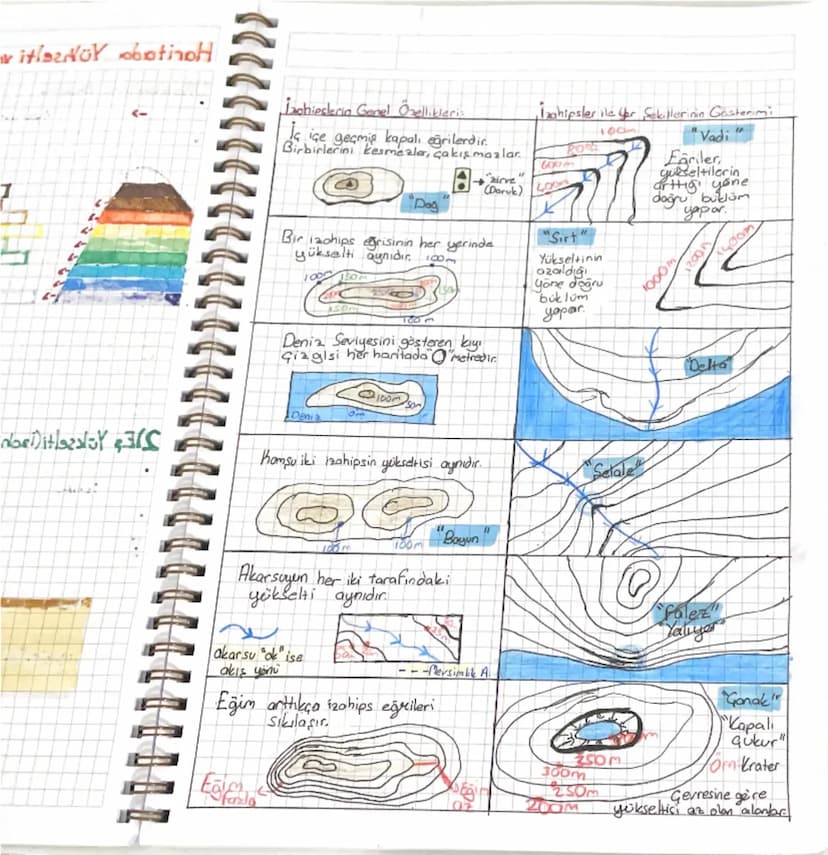 Haritada Yükselti ve
2) Eş Yükselti (İzoh
İzohipslerin Genel Özellikleri:
İç içe geçmiş kapalı eğrilerdir.
Birbirlerini kesmezler, çakışmazlar.
"Dağ"
→ "zirve"
(Doruk)
Bir izohips eğrisinin her yerinde
yükselti aynıdır.
100m
100m
150m
50m
150m
100m
Deniz Seviyesini gösteren kıyı
Çizgisi her haritada "0" metredir.
100m
50m
Deniz
0m
Komşu iki izohipsin yükseltisi aynıdır.
100m
100m
"Boyun"
Akarsuyun her iki tarafındaki
yükselti aynıdır.
Akarsu "ok" ise
akış yönü
---Mevsimlik A.
Eğim arttıkça izohips eğrileri
sıkılaşır.
Eğim
fazla
Eğim
az
İzohipsler ile Yer Şekillerinin Gösterimi
100m
800m
600m
400m
"Vadi"
Eğriler,
yükseltilerin
arttığı yöne
doğru büklüm
yapar.
"Sırt"
Yükseltinin
azaldığı
yöne doğru
büklüm
yapar.
1000m
1200m
1400m
"Delta"
"Şelale"
"Falez"
"Yalıyar"
"Çanak"
"Kapalı
Çukur"
Örn: Krater
350m
300m
250m
200m
Çevresine göre
yükseltisi az olan alanlar.